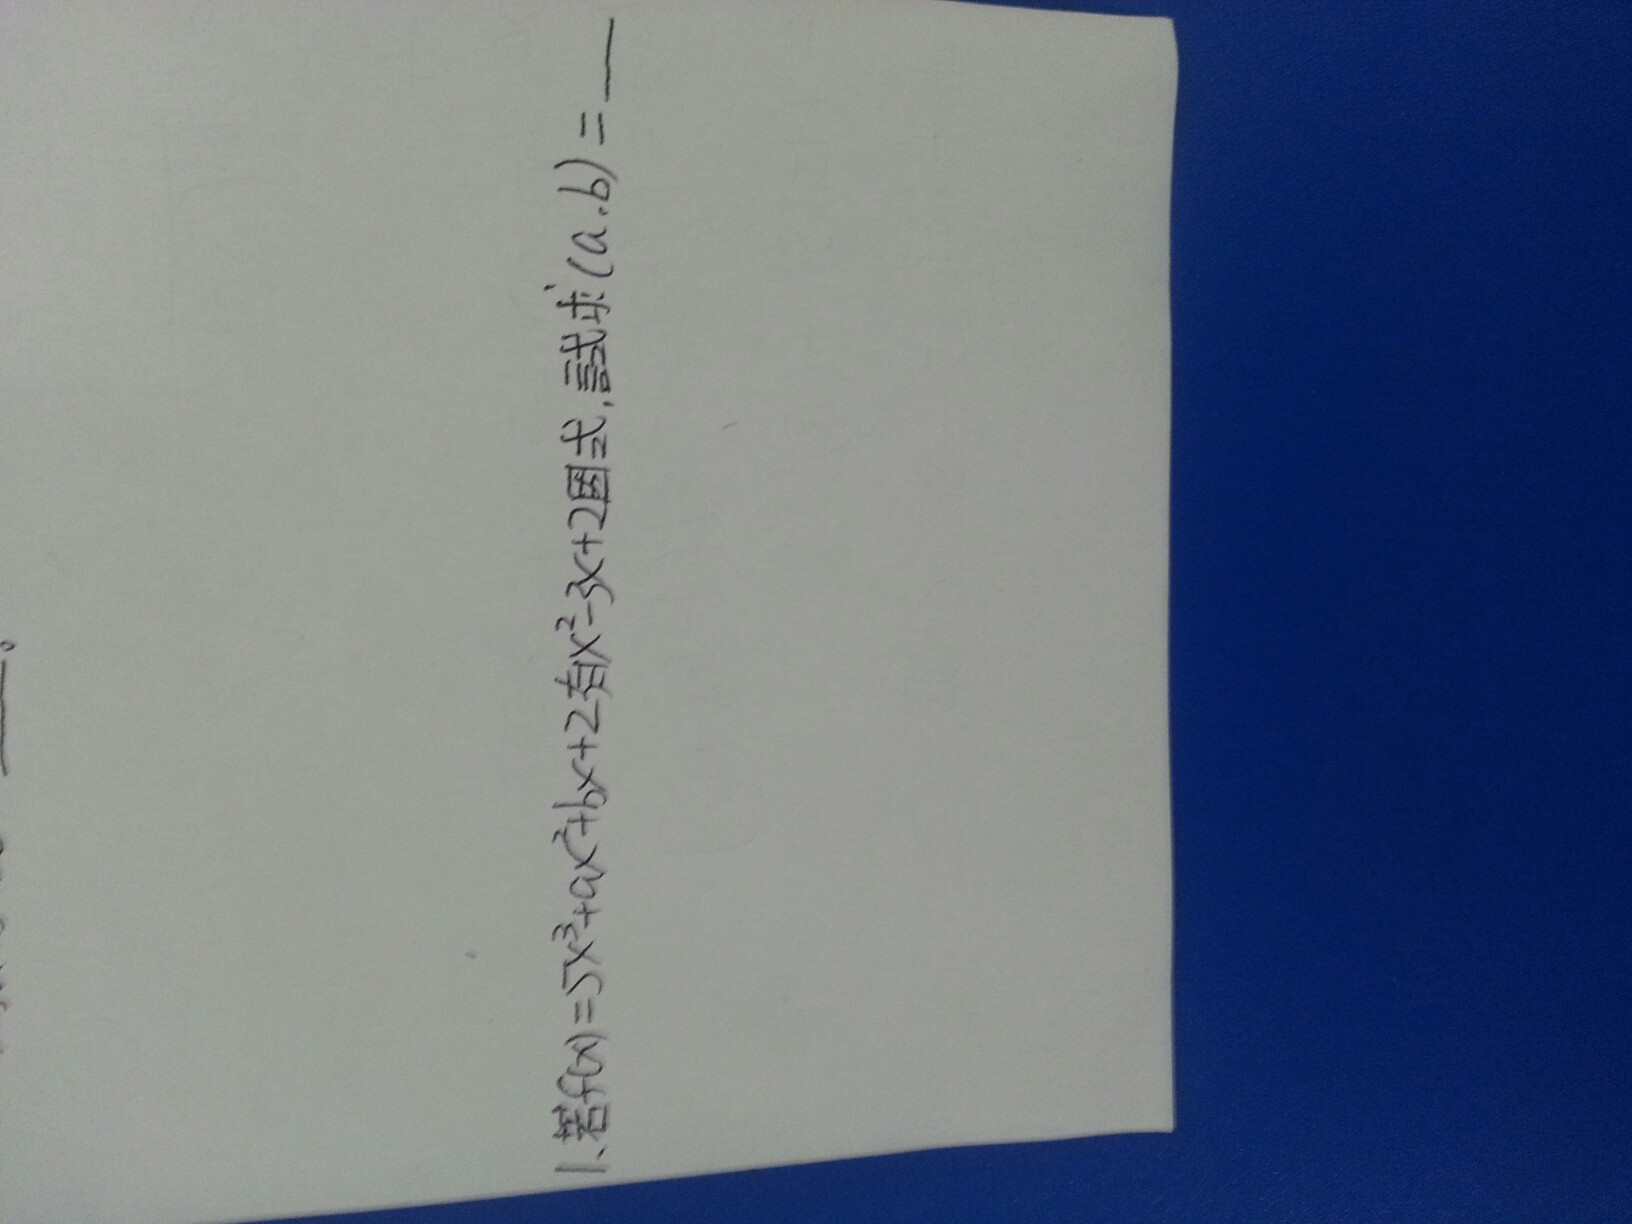 1、若f(x)=5x³+ax²+bx+2有x²-3x+2因式,試求(a.b)=___